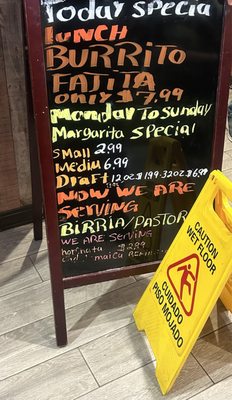 Today Special
LUNCH
BURRITO
FAJITA
ONLY $7,99
Monday To Sunday
Margarita Special
Small 2.99
Mediu 6.99
Draft 12OZ $1.99-32OZ $6.99
NOW WE ARE
SERVING
BIRRIA/PASTOR
WE ARE SERVING
$2.99
CAUTION
WET FLOOR
CUIDADO
PISO MOJADO